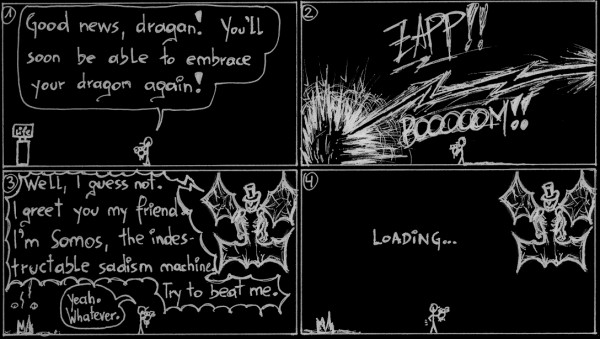 1
Good news, dragan! You'll
soon be able to embrace
your dragom again!
Life
2
ZAPP!!
BOOOOOM!!
3
Well, I guess not.
I greet you my friend.
I'm Somos, the indes-
tructable sadism machine.
Try to beat me.
Yeah.
Whatever.
4
LOADING...